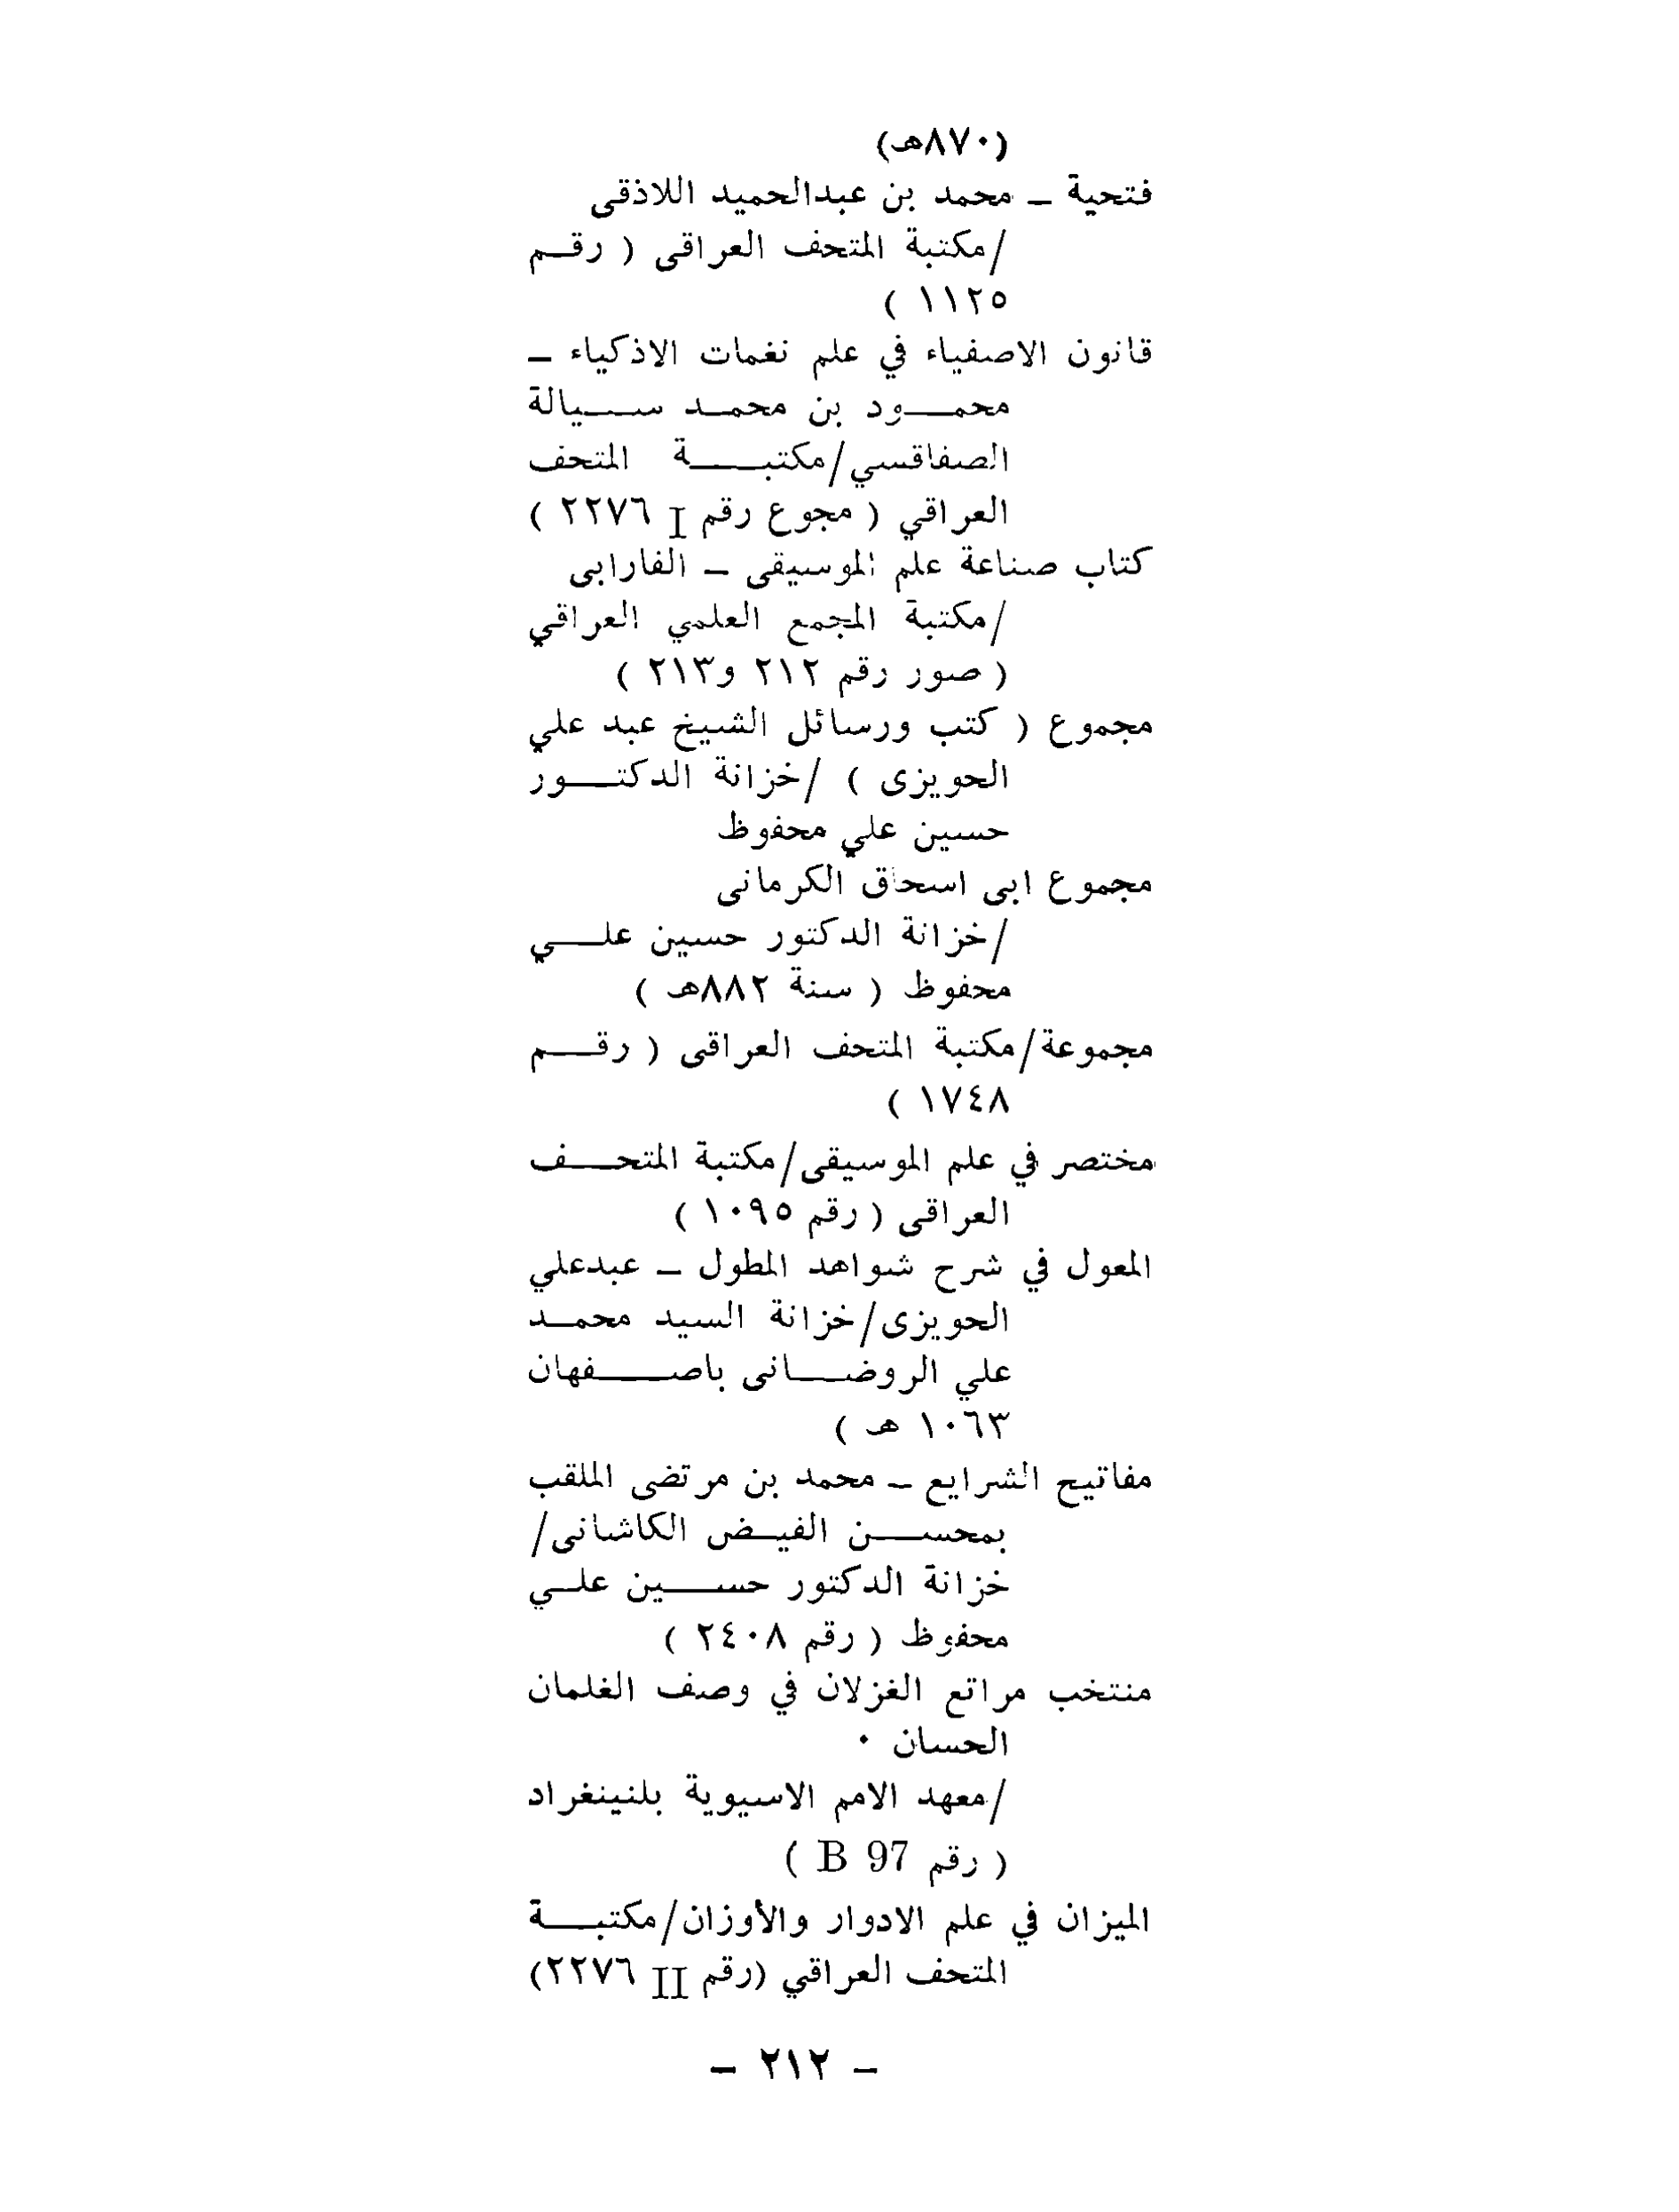 (٨٧٠هـ)
فتحية ـ محمد بن عبدالحميد اللاذقى
/مكتبة المتحف العراقى ( رقم
١١٢٥ )
قانون الاصفياء في علم نغمات الاذكياء ـ
محمود بن محمد سيالة
الصفاقسي/مكتبة المتحف
العراقي ( مجوع رقم I ٢٢٧٦ )
كتاب صناعة علم الموسيقى ـ الفارابى
/مكتبة المجمع العلمي العراقي
( صور رقم ٢١٢ و٢١٣ )
مجموع ( كتب ورسائل الشيخ عبد علي
الحويزى ) /خزانة الدكتور
حسين علي محفوظ
مجموع ابى اسحاق الكرمانى
/خزانة الدكتور حسين علي
محفوظ ( سنة ٨٨٢هـ )
مجموعة/مكتبة المتحف العراقى ( رقم
١٧٤٨ )
مختصر في علم الموسيقى/مكتبة المتحف
العراقى ( رقم ١٠٩٥ )
المعول في شرح شواهد المطول ـ عبدعلي
الحويزى/خزانة السيد محمد
علي الروضانى باصفهان
١٠٦٣ هـ )
مفاتيح الشرايع ـ محمد بن مرتضى الملقب
بمحسن الفيض الكاشانى/
خزانة الدكتور حسين علي
محفوظ ( رقم ٢٤٠٨ )
منتخب مراتع الغزلان في وصف الغلمان
الحسان ٠
/معهد الامم الاسيوية بلنينغراد
( رقم B 97 )
الميزان في علم الادوار والأوزان/مكتبة
المتحف العراقي (رقم II ٢٢٧٦)
ـ ٢١٢ ـ